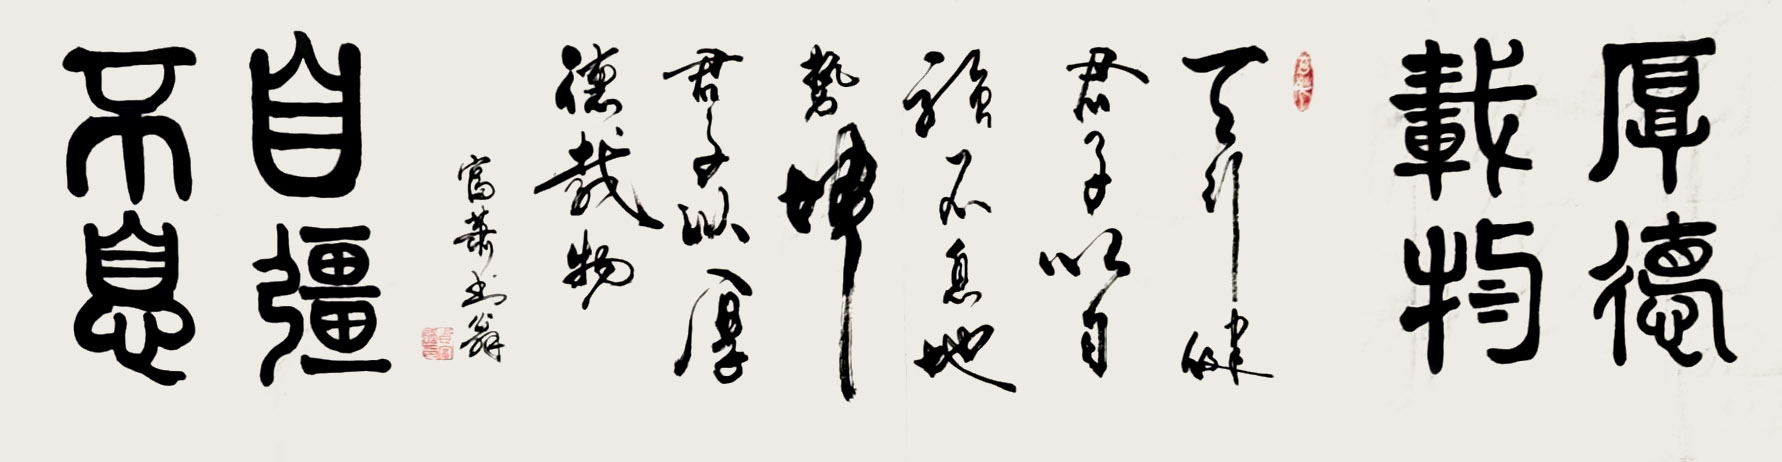 厚德
載物
天行健
君子以自
强不息地
勢坤
君子以厚
德載物
富華書翁
自彊
不息